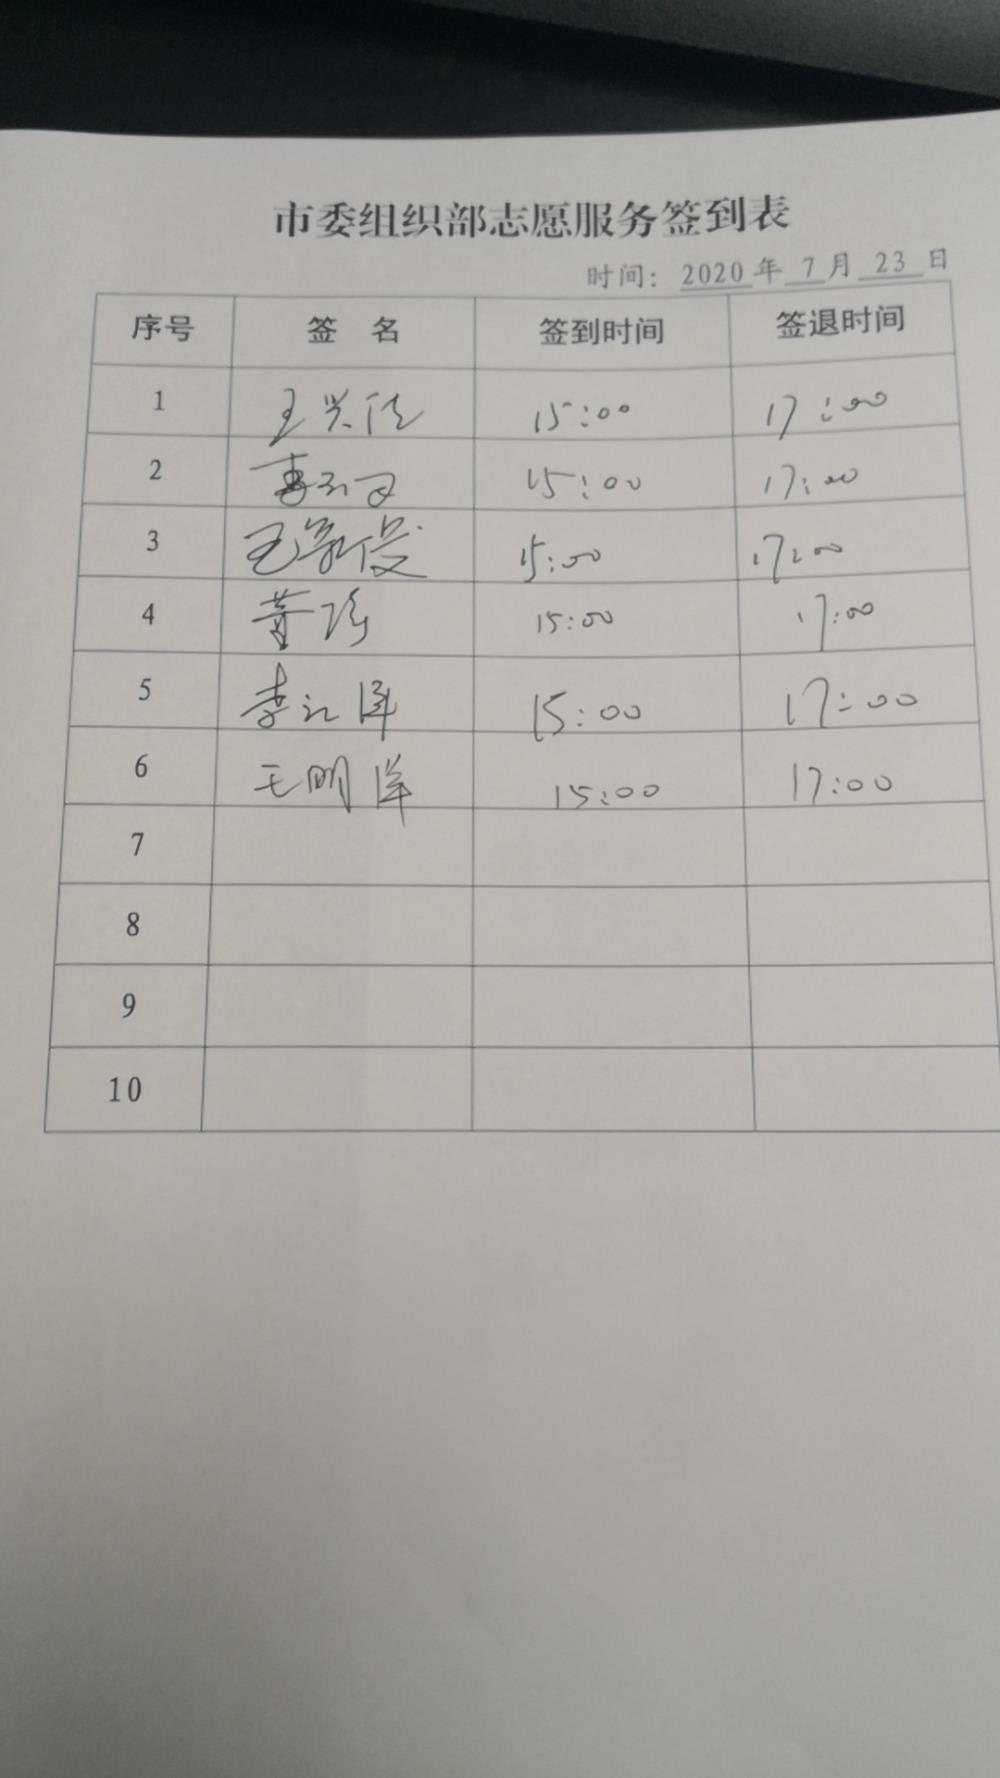 市委组织部志愿服务签到表
时间：2020年 7 月 23 日
序号 签 名 签到时间 签退时间
1 王兴 15:00 17:00
2 15:00 17:00
3 王 15:00 17:00
4 黄珍 15:00 17:00
5 李江泽 15:00 17:00
6 王明洋 15:00 17:00
7
8
9
10